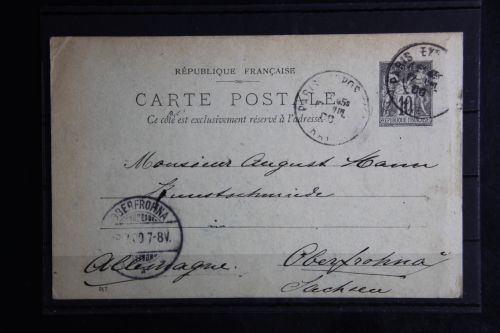 RÉPUBLIQUE FRANÇAISE
CARTE POSTALE
Ce côté est exclusivement réservé à l'adresse.
PARIS
PARIS
10
Monsieur August Hann
Kunstschmiede
OBERFROHNA
7-8V.
Allemagne.
Oberfrohna
Sachsen